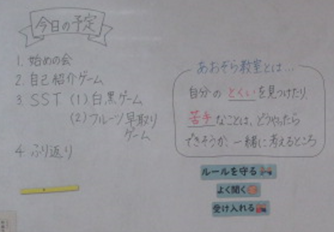 今日の予定
1. 始めの会
2. 自己紹介ゲーム
3. SST (1) 白黒ゲーム
(2) フルーツ早取り
ゲーム
4. ふり返り
あおぞら教室とは…
自分の とくい を見つけたり
苦手 なことは、どうやったら
できそうか 一緒に考えるところ
ルールを守る
よく聞く
受け入れる